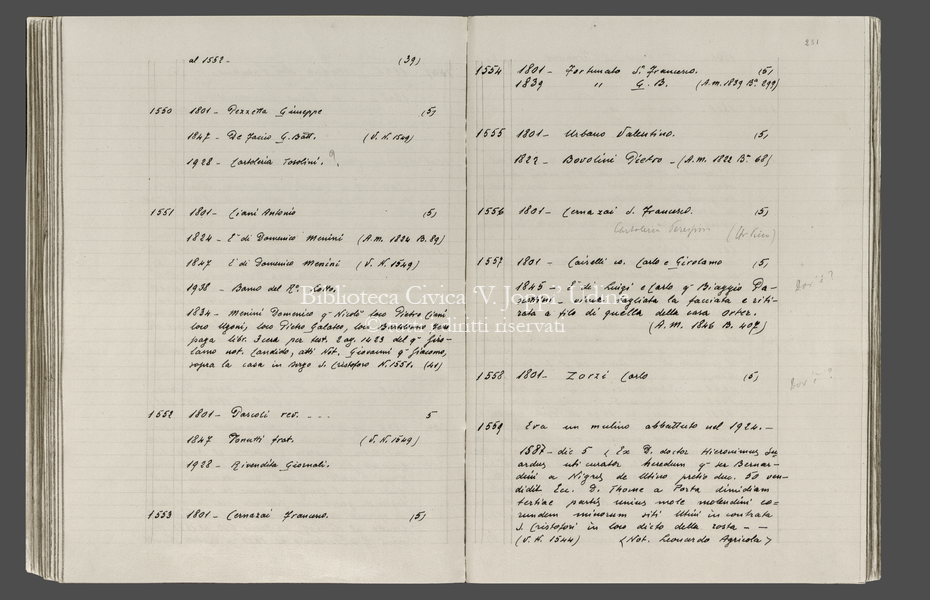 al 1552- (39)
1550 1801- Pezzetta Giuseppe (5)
1847- De Facio G. Batt. (V. N. 1549)
1928- Cartoleria Tosolini. ?
1551 1801- Ciani Antonio (5)
1824- È di Domenico Menini (A.m. 1824 B. 89)
1847 È di Domenico Menini (V. N. 1549)
1938- Banco del Lotto.
1834- Menini Domenico q Nicolò loco Pietro Ciani
loco Ugoni, loco Pietro Galateo, loco Bortolomio
paga libr. 3 cera per test. 2 ag. 1423 del q Giro-
lamo not. Candido, atti Not. Giovanni q Giacomo,
sopra la casa in borgo S. Cristoforo N. 1551. (41)
1552 1801- Dascoli rev. - - - 5
1847 Tonutti frat. (V. N. 1549)
1928- Rivendita Giornali.
1553 1801- Cernazai Francesco. (5)
251
1554 1801- Fortunato S. Francesco. (5)
1839 " G. B. (A.m. 1839 B. 299)
1555 1801- Urbano Valentino. (5)
1822- Bovolini Pietro - (A.m. 1822 B. 68)
1556 1801- Cernazai S. Francesco. (5)
Cartoleria
1557 1801- Caiselli co. Carlo e Girolamo (5)
1845- È di Luigi e Carlo q Biaggio
tagliata la facciata e riti-
rata a filo di quella della casa Orter.
(A.m. 1846 B. 407)
Dov'è?
1558 1801- Zorzi Carlo (5)
Dov'è?
1559 Era un mulino abbattuto nel 1924.-
1587- dic 5 < Ex D. doctor Hieronimus
uti curator heredum q ser Bernar-
dini a Nigris de Utino pretio duc. 50 ven-
didit Ecc. D. Thome a Porta dimidiam
tertiae partis unius mole molendini eo-
rundem minorum siti Utini in contrata
S. Cristofori in loco dicto della rosta - -
(V. N. 1544) <Not. Leonardo Agricola>
Biblioteca Civica 'V. Joppi' Udine
© tutti i diritti riservati